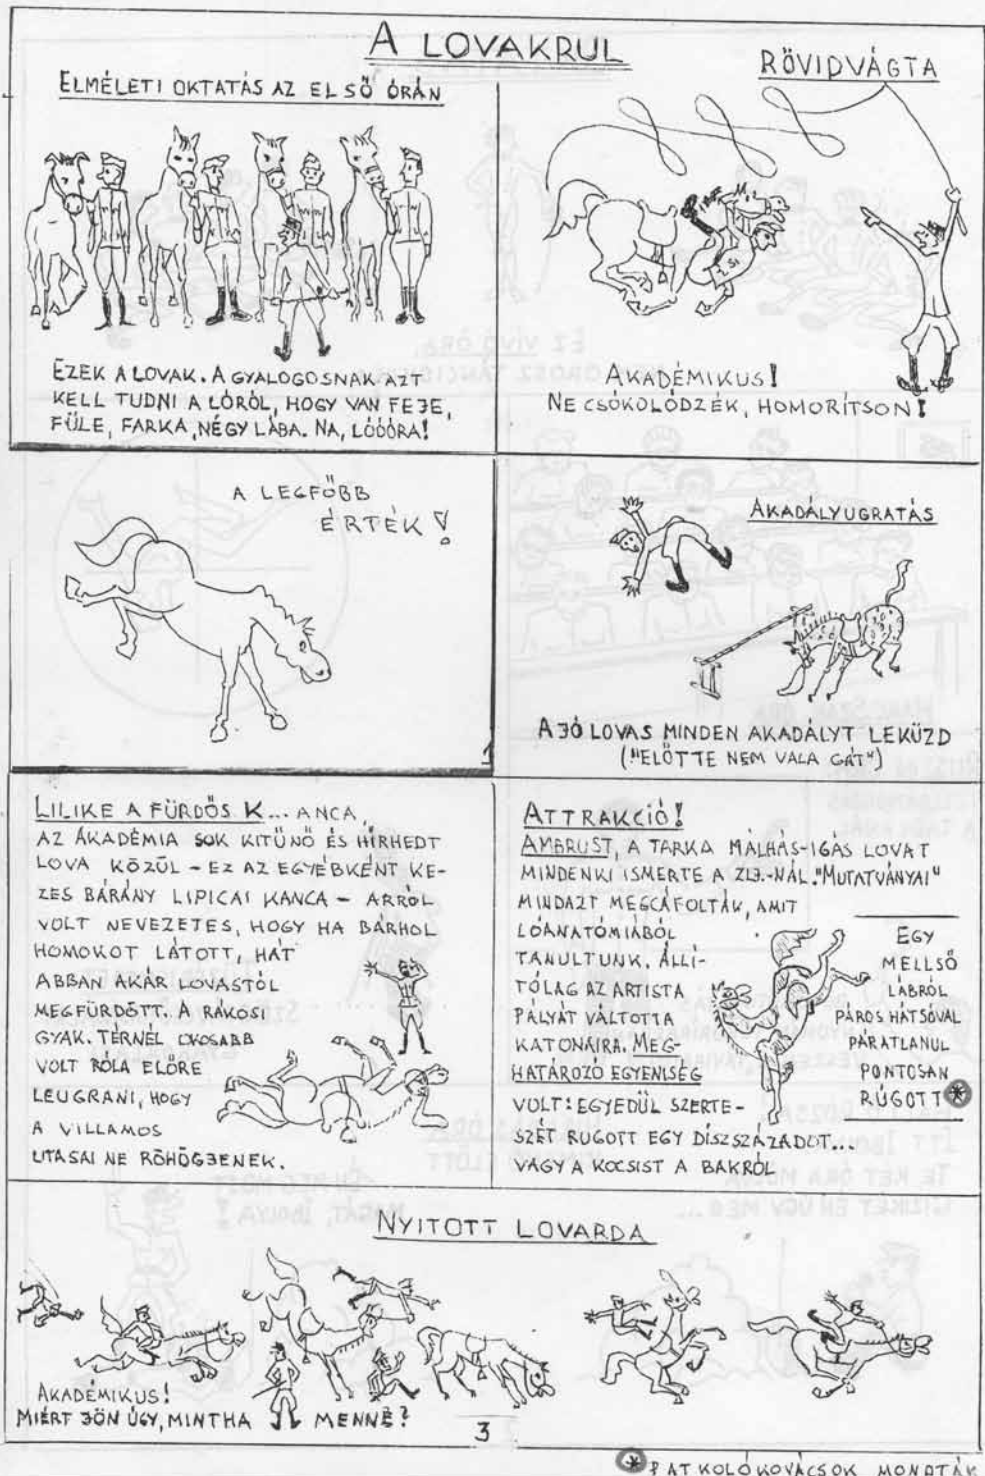 A LOVAKRUL
ELMÉLETI OKTATÁS AZ ELSŐ ÓRÁN
EZEK A LOVAK. A GYALOGOSNAK AZT
KELL TUDNI A LÓRÓL, HOGY VAN FEJE,
FÜLE, FARKA, NÉGY LÁBA. NA, LÓÓÓRA!
RÖVIDVÁGTA
AKADÉMIKUS!
NE CSÓKOLÓDZÉK, HOMORÍTSON!
A LEGFŐBB
ÉRTÉK!
1
AKADÁLYUGRATÁS
A JÓ LOVAS MINDEN AKADÁLYT LEKÜZD
("ELŐTTE NEM VALA GÁT")
LILIKE A FÜRDŐS K... ANCA,
AZ AKADÉMIA SOK KITŰNŐ ÉS HÍRHEDT
LOVA KÖZÜL - EZ AZ EGYÉBKÉNT KE-
ZES BÁRÁNY LIPICAI KANCA - ARRÓL
VOLT NEVEZETES, HOGY HA BÁRHOL
HOMOKOT LÁTOTT, HÁT
ABBAN AKÁR LOVASTÓL
MEGFÜRDÖTT. A RÁKOSI
GYAK. TÉRNÉL OKOSABB
VOLT RÓLA ELŐRE
LEUGRANI, HOGY
A VILLAMOS
UTASAI NE RÖHÖGJENEK.
ATTRAKCIÓ!
AMBRUST, A TARKA MÁLHÁS-IGÁS LOVAT
MINDENKI ISMERTE A ZLJ.-NÁL. "MUTATVÁNYAI"
MINDAZT MEGCÁFOLTÁK, AMIT
LÓANATÓMIÁBÓL
TANULTUNK. ÁLLÍ-
TÓLAG AZ ARTISTA
PÁLYÁT VÁLTOTTA
KATONAIRA. MEG-
HATÁROZÓ EGYENISÉG
VOLT! EGYEDÜL SZERTE-
SZÉT RUGOTT EGY DÍSZSZÁZADOT...
VAGY A KOCSIST A BAKRÓL
EGY
MELLSŐ
LÁBRÓL
PÁROS HÁTSÓVAL
PÁRATLANUL
PONTOSAN
RÚGOTT *
NYITOTT LOVARDA
AKADÉMIKUS!
MIÉRT JÖN ÚGY, MINTHA MENNE?
3
* PATKOLÓKOVÁCSOK MONDTÁK